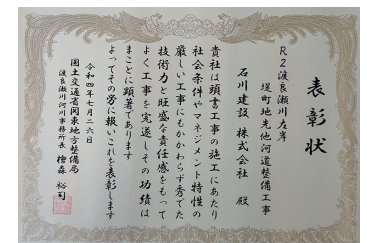 表彰状
R2渡良瀬川左岸
堤町地先他河道整備工事
石川建設 株式会社 殿
貴社は頭書工事の施工にあたり
社会条件やマネジメント特性の
厳しい工事にもかかわらず秀でた
技術力と旺盛な責任感をもって
よく工事を完遂しその功績は
まことに顕著であります
よってその労に報いこれを表彰します
令和四年七月二六日
国土交通省関東地方整備局
渡良瀬川河川事務所長 檜森 裕司